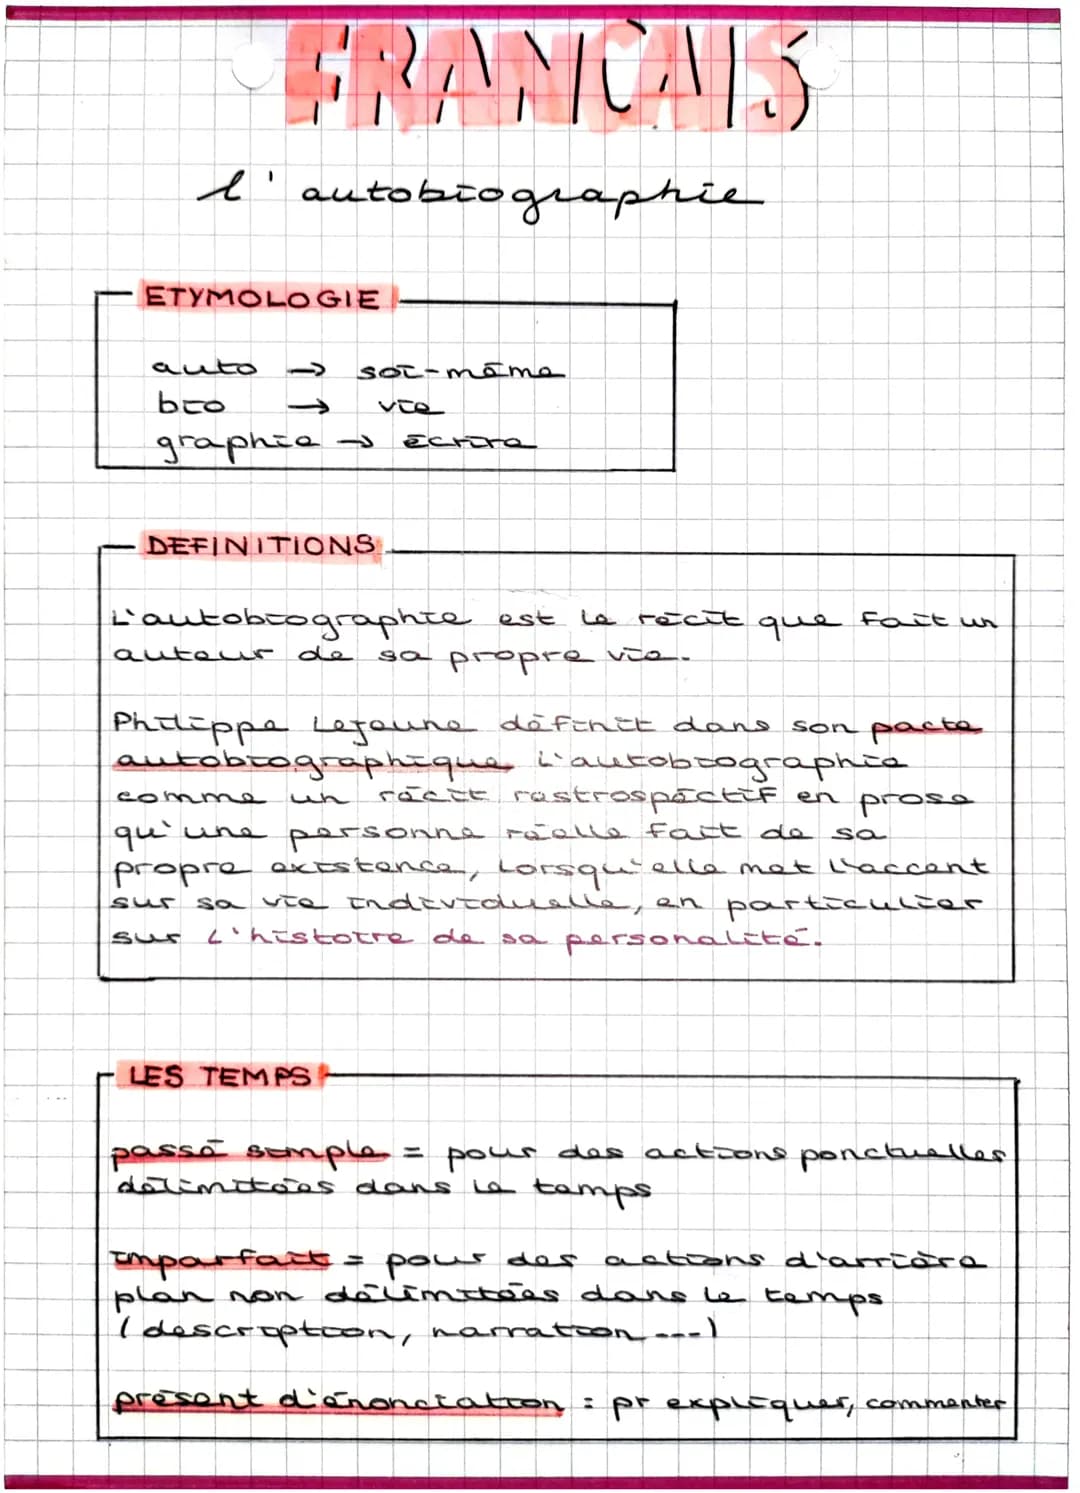 FRANCAIS
l'autobiographie
ETYMOLOGIE
auto → soi-même
bio → vie
graphie → écrire
DEFINITIONS
L'autobiographie est le récit que fait un
auteur de sa propre vie.
Philippe Lejeune définit dans son pacte
autobiographique l'autobiographie
comme un récit rastrospectif en prose
qu'une personne réelle fait de sa
propre existence, lorsqu'elle met l'accent
sur sa vie individuelle, en particulier
sur l'histoire de sa personalité.
LES TEMPS
passé simple = pour des actions ponctuelles
délimitées dans le temps
imparfait = pour des actions d'arrière
plan non délimitées dans le temps
(description, narration ...)
présent d'énonciation : pr expliquer, commenter